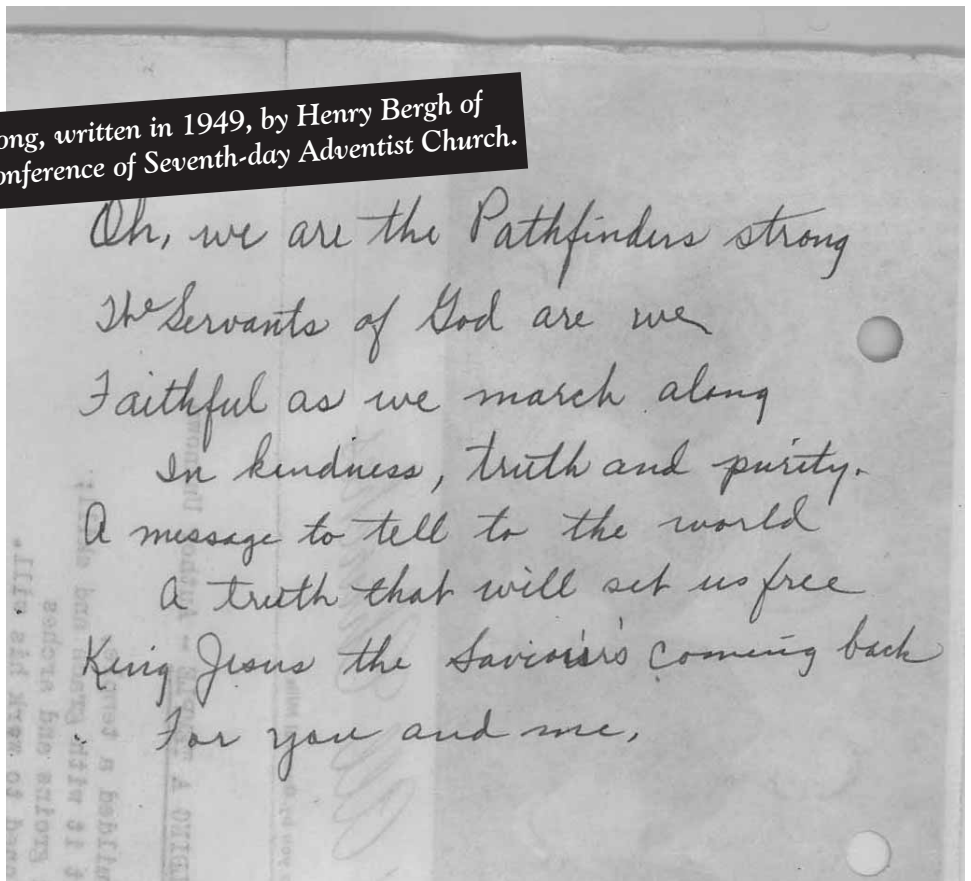 ong, written in 1949, by Henry Bergh of
onference of Seventh-day Adventist Church.
Oh, we are the Pathfinders strong
The Servants of God are we
Faithful as we march along
In kindness, truth and purity.
A message to tell to the world
A truth that will set us free
King Jesus the Saviour's coming back
For you and me,